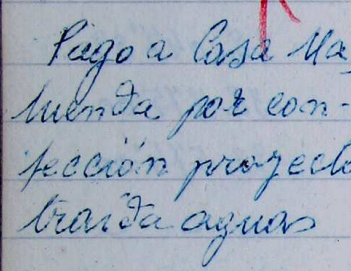 Pago a Casa Ma
luenda por con-
fección proyecto
traída aguas